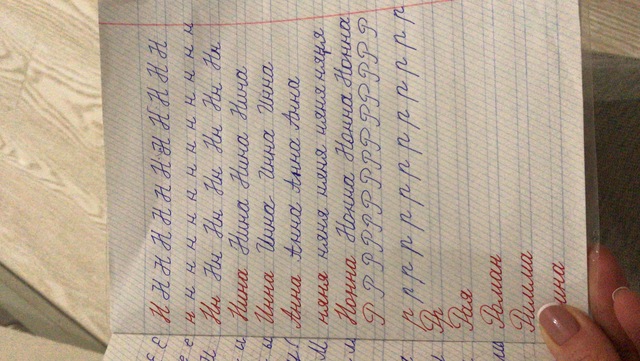 Н Н Н Н Н Н Н Н Н Н
н н н н н н н н н н н н н
Нн Нн Нн Нн Нн Нн Нн Нн
Нина Нина Нина Нина
Инна Инна Инна Инна
Анна Анна Анна Анна
няня няня няня няня няря
Нонна Нонна Нонна Нонна
Р Р Р Р Р Р Р Р Р Р Р Р Р
р р р р р р р р р р р р р
Рр
Рая
Роман
Римма